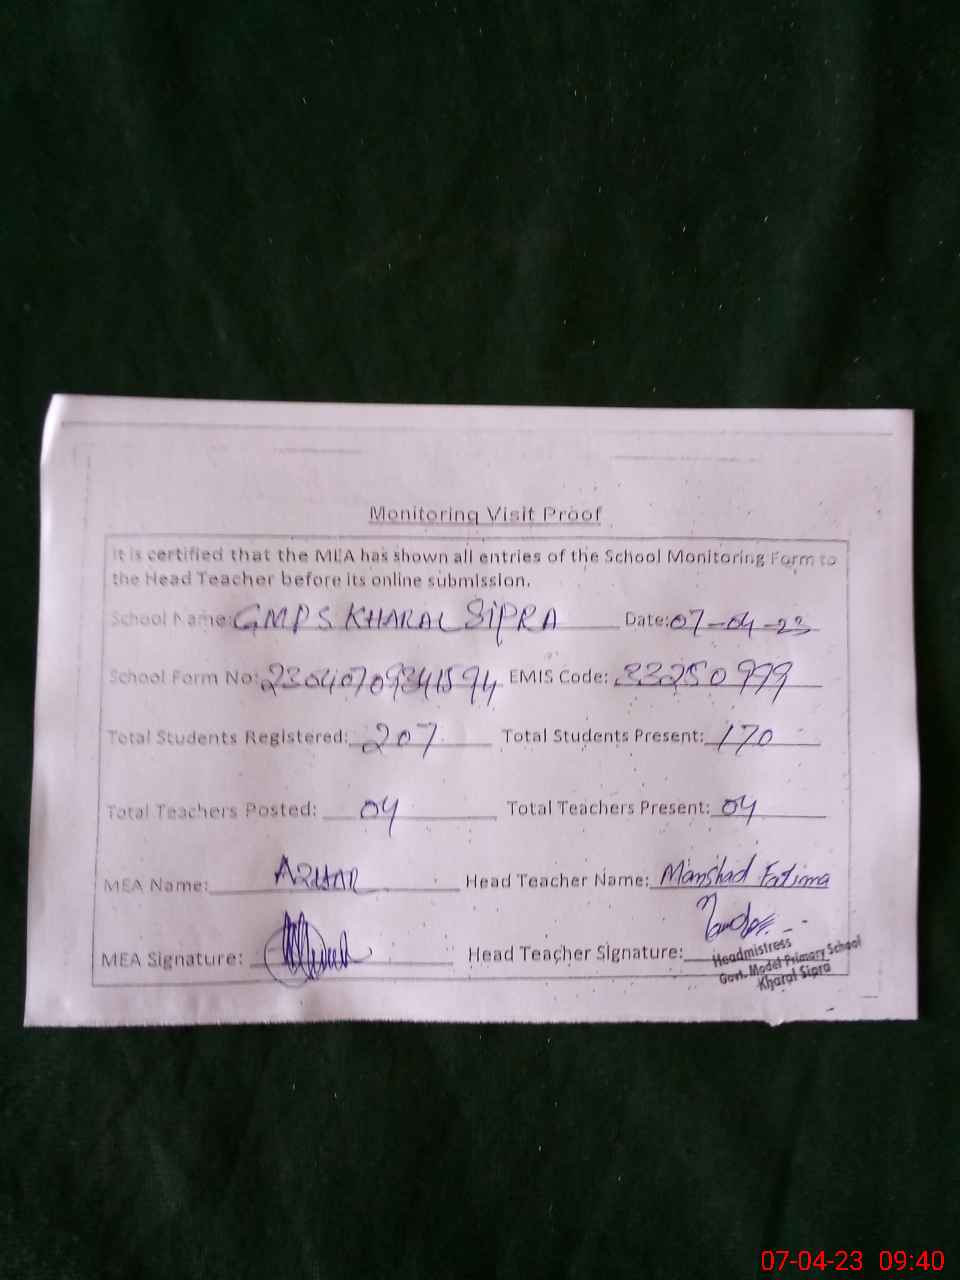 Monitoring Visit Proof
It is certified that the MEA has shown all entries of the School Monitoring Form to
the Head Teacher before its online submission.
School Name: GMPS KHARAL SIPRA Date: 07-04-23
School Form No: EMIS Code: 33250999
Total Students Registered: 207 Total Students Present: 170
Total Teachers Posted: 04 Total Teachers Present: 04
MEA Name: AZHAR Head Teacher Name: Manshad Fatima
MEA Signature: Head Teacher Signature:
Headmistress
Govt. Model Primary School
Kharal Sipra
07-04-23 09:40